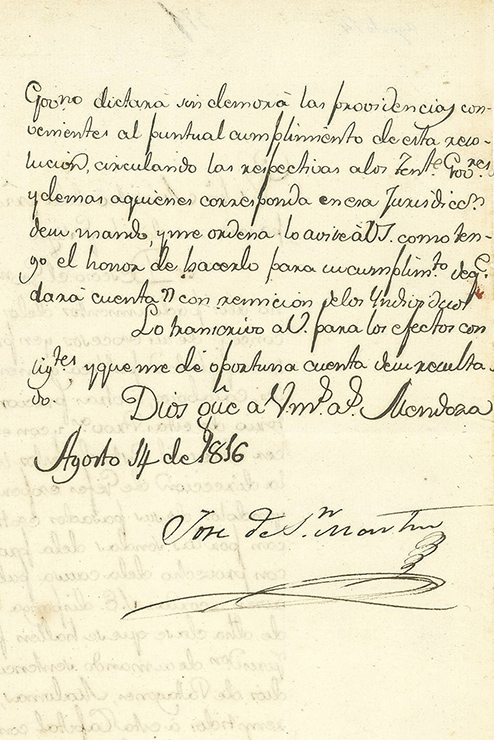 Gov.no dictará sin demora las providencias con-
venientes al puntual cumplimiento de esta reso-
lucion, circulando las respectivas a los Ten.tes Gov.res
y demas aquienes corresponda en esa Jurisdicc.n
de su mando, y me ordena lo avise à V.S. como ten-
go el honor de hacerlo para su cumplim.to de q.e
dará cuenta con remision de los Individuos
Lo transcrivo a V. para los efectos con
sig.tes y que me dé oportuna cuenta de su resulta
do.
Dios gũe a Vm.s a.s Mendoza
Agosto 14 de 1816
Jose de S.n Martin